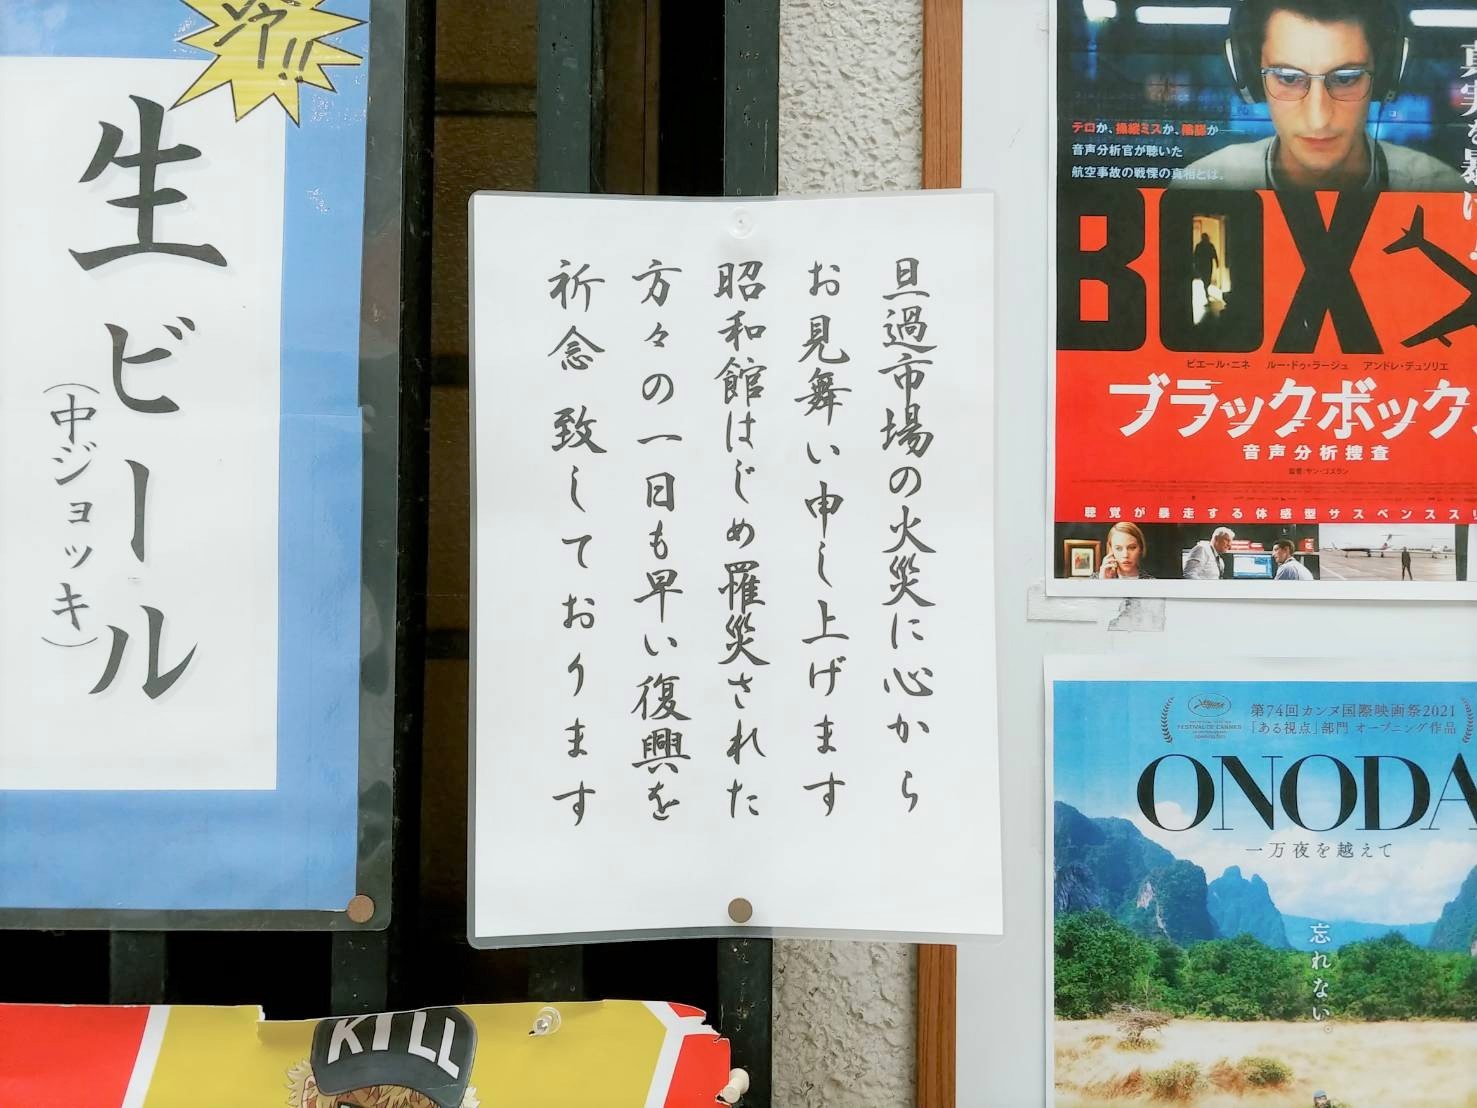 生ビール
(中ジョッキ)
旦過市場の火災に心から
お見舞い申し上げます
昭和館はじめ罹災された
方々の一日も早い復興を
祈念致しております
テロか、操縦ミスか、陰謀か
音声分析官が聴いた
航空事故の戦慄の真相とは。
BOX
ピエール・ニネ ルー・ドゥ・ラージュ アンドレ・デュソリエ
ブラックボックス
音声分析捜査
監督:ヤン・ゴズラン
聴覚が暴走する体感型サスペンスス
第74回カンヌ国際映画祭2021
「ある視点」部門 オープニング作品
FESTIVAL DE CANNES
ONODA
一万夜を越えて
忘れない。
KILL